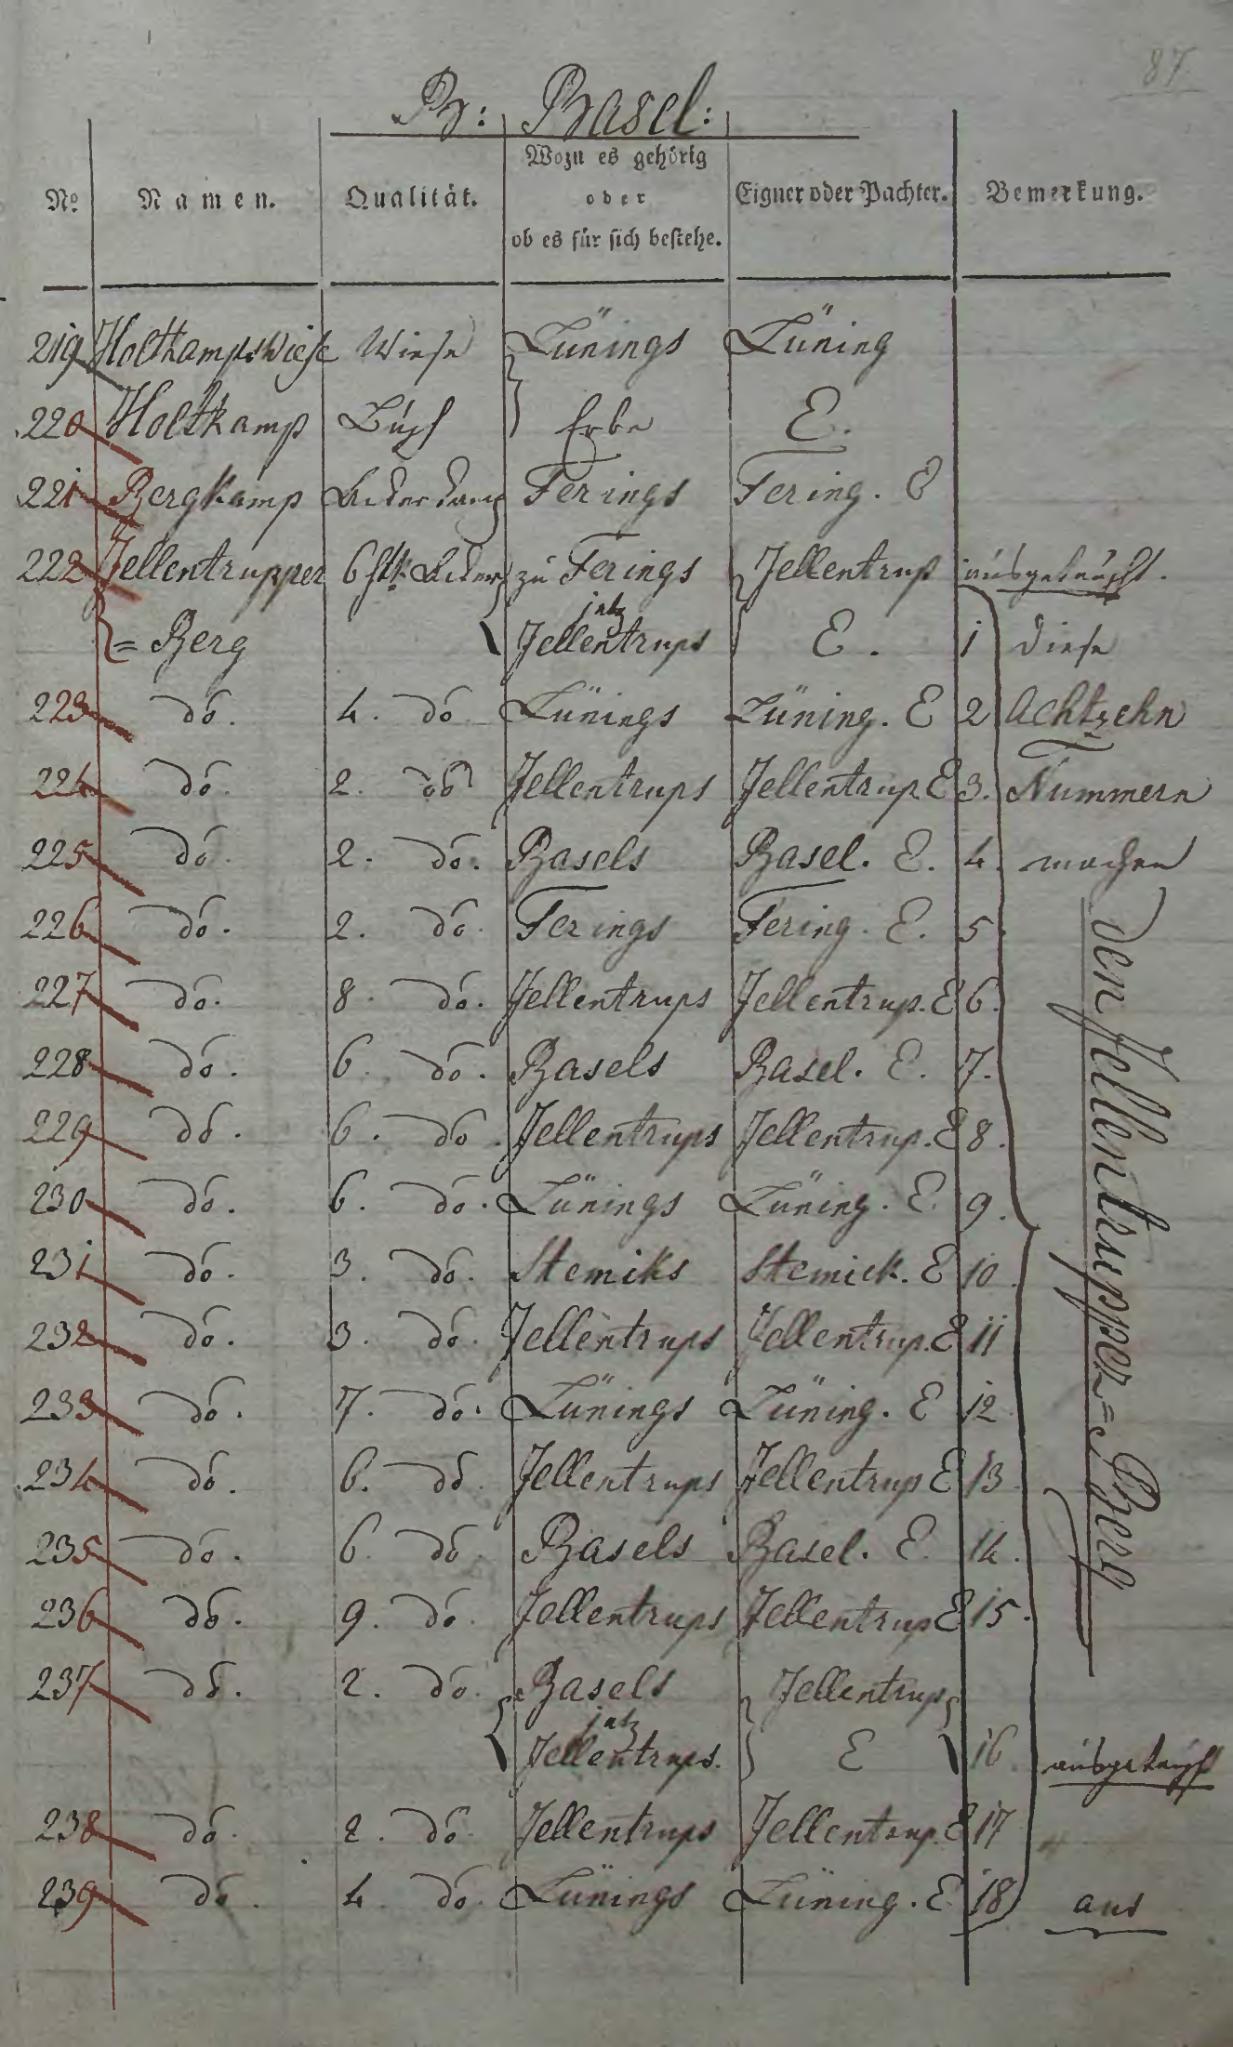 87
B: Basel:
No. Namen. Qualität. Wozu es gehörig oder ob es für sich bestehe. Eigner oder Pachter. Bemerkung.
219 Holtkampswiese Wiese Lünings Lüning
220 Holtkamp Busch Erbe E.
221 Bergkamp Ackerkamp Ferings Fering. E
222 Jellentrupper 6 stk. Acker zu Ferings Jellentrup ausgetauscht.
= Berg jetz Jellentrups E. 1 Diese
223 do. 4. do Lünings Lüning. E 2 Achtzehn
224 do. 2. do Jellentrups Jellentrup E 3. Nummern
225 do. 2. do. Basels Basel. E. 4. machen
226 do. 2. do. Ferings Fering. E. 5.
227 do. 8. do. Jellentrups Jellentrup. E 6.
228 do. 6. do. Basels Basel. E. 7.
229 do. 6. do. Jellentrups Jellentrup. E 8.
230 do. 6. do. Lünings Lüning. E. 9.
231 do. 3. do. Stemiks Stemick. E 10.
232 do. 3. do. Jellentrups Jellentrup. E 11
233 do. 7. do. Lünings Lüning. E 12
234 do. 6. do Jellentrups Jellentrup E 13
235 do. 6. do Basels Basel. E. 14.
236 do. 9. do. Jellentrups Jellentrup E 15.
237 do. 2. do. Basels Jellentrup
jetz Jellentrups. E 16
238 do. 2. do. Jellentrups Jellentrup. E 17
239 do. 4. do. Lünings Lüning. E 18
den Jellentrupper=Berg
aus